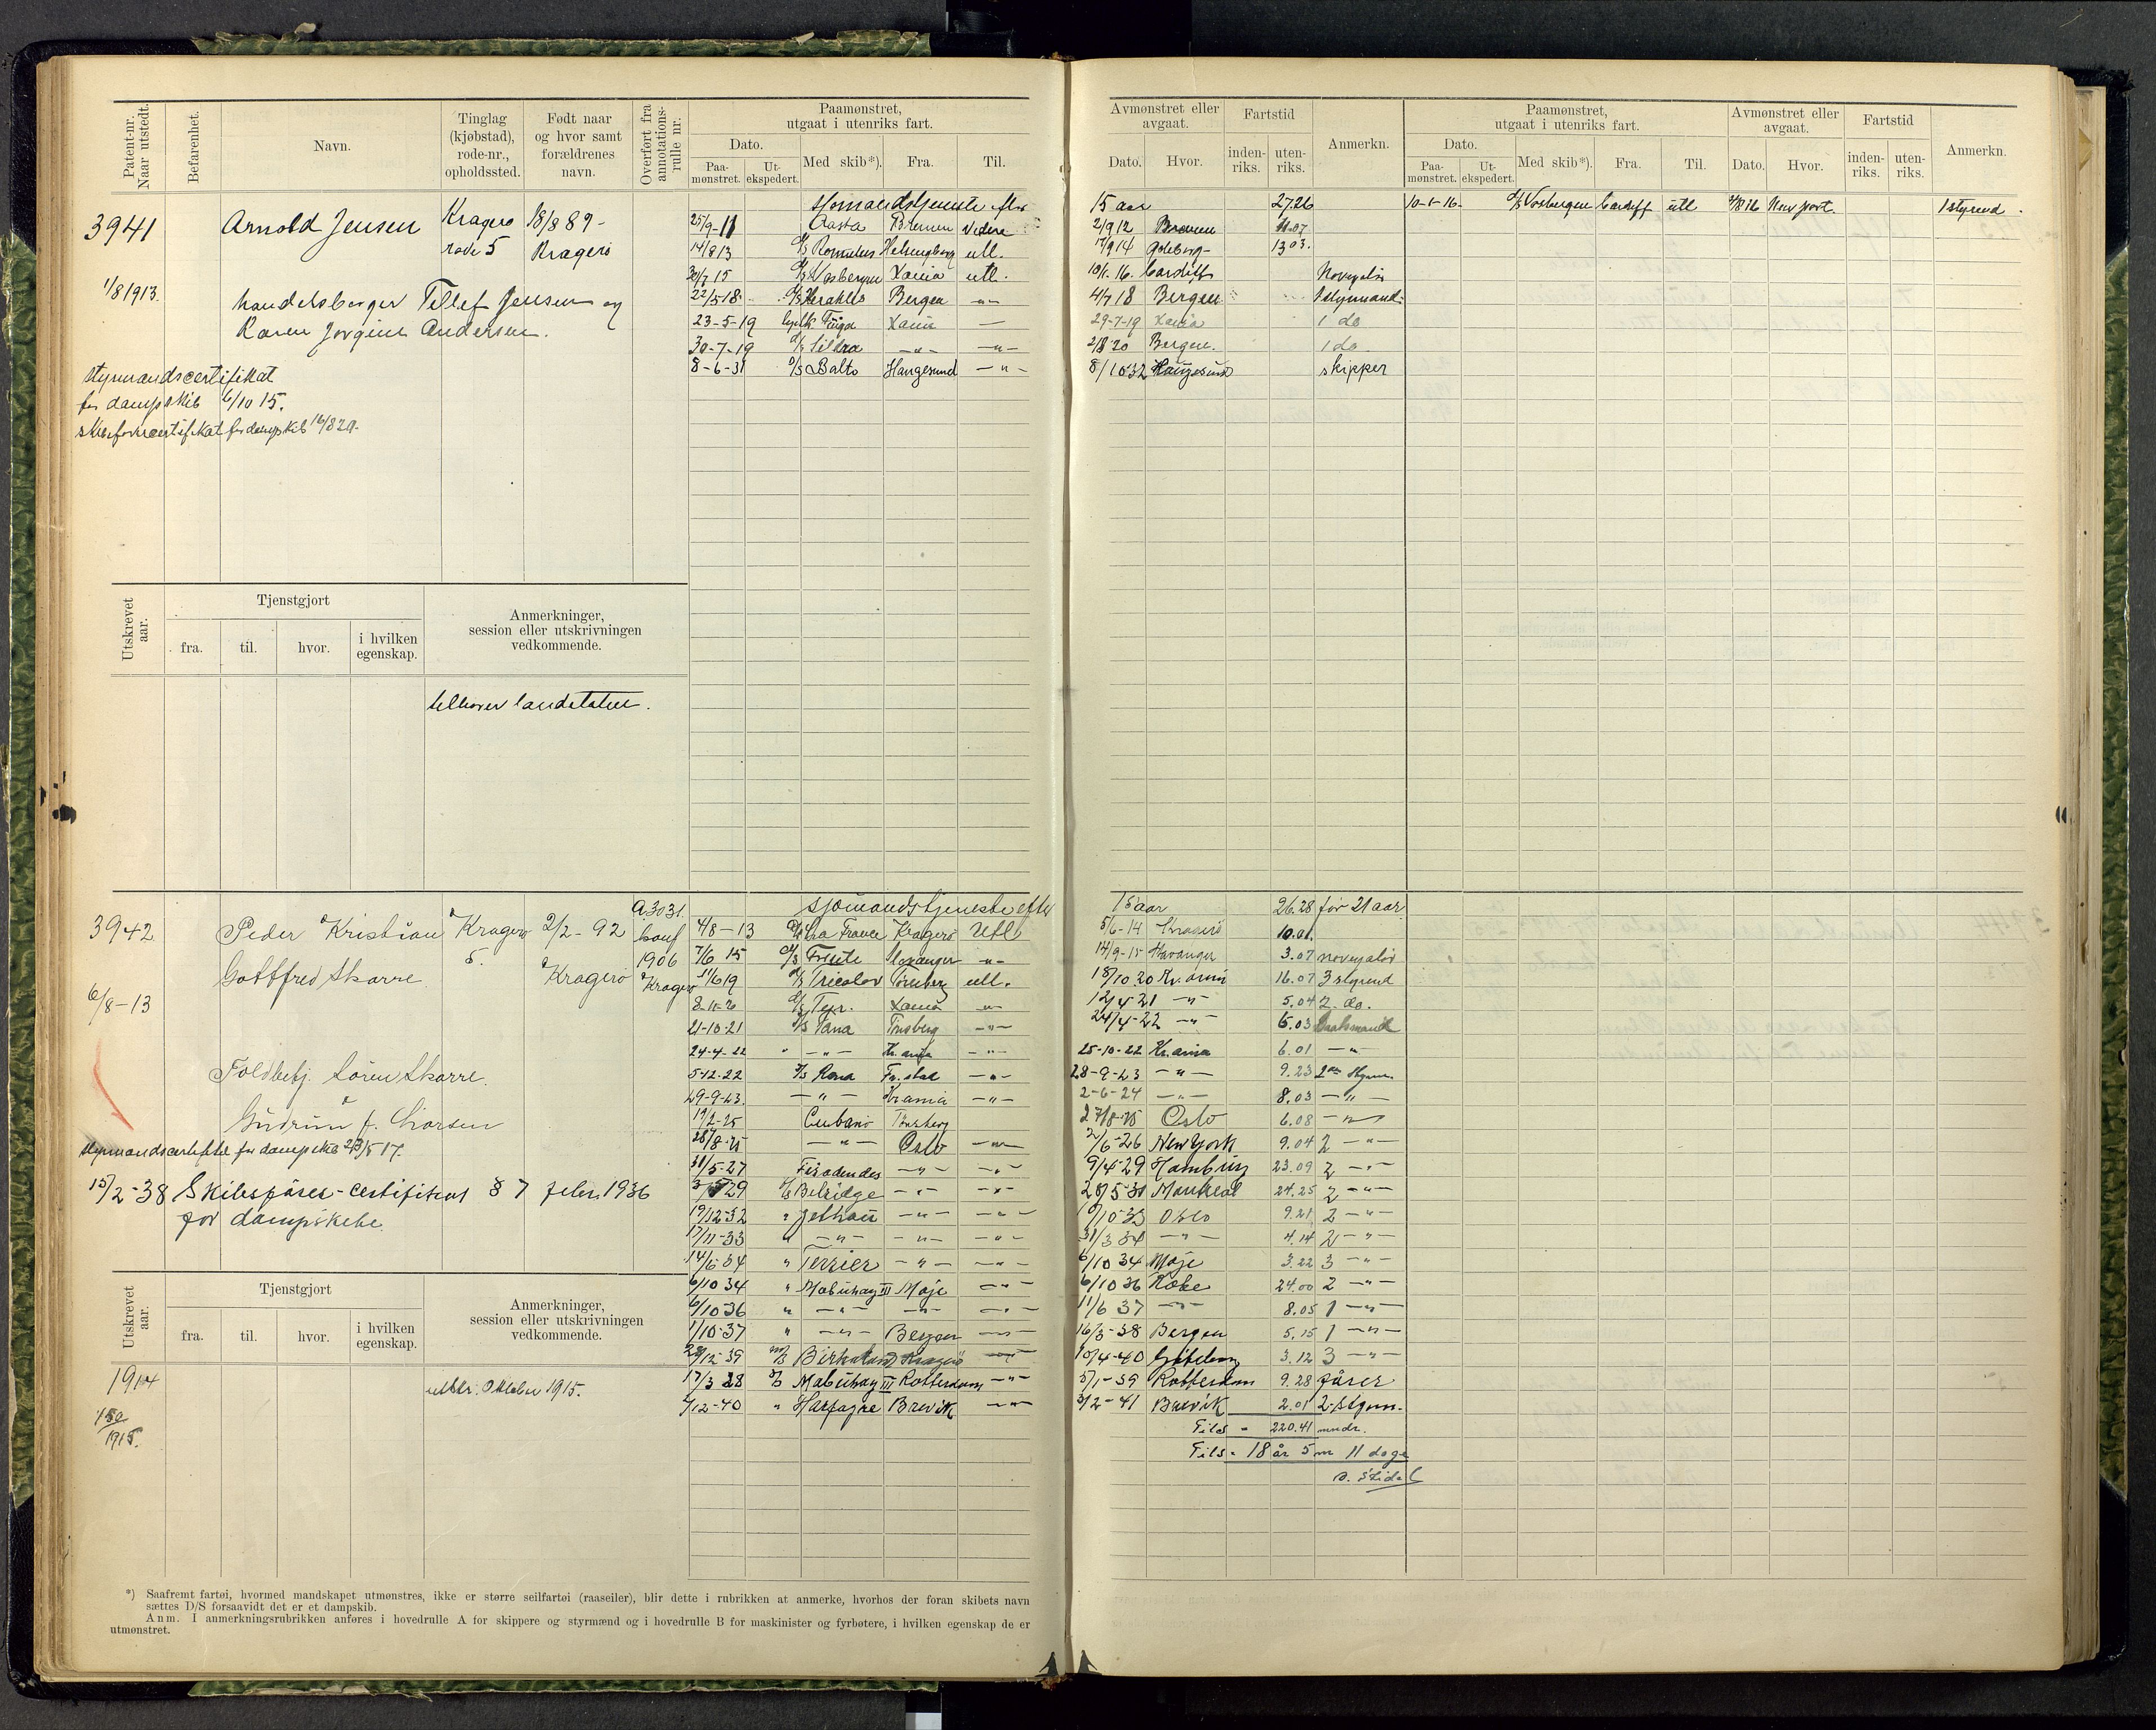 Patent-nr. Naar utstedt.
Befarenhet.
Navn.
Tinglag (kjøbstad), rode-nr., opholdssted.
Født naar og hvor samt forældrenes navn.
Overført fra annotations-rulle nr.
Paamønstret, utgaat i utenriks fart.
Dato.
Paa-mønstret.
Ut-ekspedert.
Med skib*).
Fra.
Til.
Avmønstret eller avgaat.
Dato.
Hvor.
Fartstid
inden-riks.
uten-riks.
Anmerkn.
Paamønstret, utgaat i utenriks fart.
Dato.
Paa-mønstret.
Ut-ekspedert.
Med skib*).
Fra.
Til.
Avmønstret eller avgaat.
Dato.
Hvor.
Fartstid
inden-riks.
uten-riks.
Anmerkn.
3941
Arnold Jensen
Kragerø
rode 5
18/8 89 -
Kragerø
1/8 1913.
handelsborger Tellef Jensen og
Karen Jørgine Andersen.
styrmandscertifikat
for dampskib 6/10 15.
skibsførercertifikat for dampskib 16/8 20.
sjømandstjeneste efter 15 aar 27.26
25/9-11 Aasta Bremen Videre 2/9 12 Bremen 11.07
14/8 13 D/S Romulus Helsingborg utl. 17/9 14 Gøteborg 13 03.
30/7 15 D/S Vosbergen Xania utl. 10/1. 16. Cardiff Novegalør
22/5-18 D/S Herakles Bergen -"- 4/7 18 Bergen 1 styrmand
23-5-19 Xania — 29-7-19 Xania 1 do
30-7-19 D/S -"- -"- 2/8 20 Bergen. 1 do
8-6-31 D/S Balto Haugesund -"- 8/10 32 Haugesund skipper
10-1-16- D/S Vosbergen Cardiff utl 2/8 16 New port. 1 styrmd.
Utskrevet aar.
Tjenstgjort
fra.
til.
hvor.
i hvilken egenskap.
Anmerkninger, session eller utskrivningen vedkommende.
tilhører landetaten.
3942
Peder Kristian
Gottfred Skarre
Kragerø
5.
2/2-92
Kragerø
A.3031.
konf
1906
Kragerø
6/8-13
Toldbetj. Søren Skarre.
Gudrun f. Larsen
styrmandscertifikat for dampskib 23/5 17.
15/2-38 Skibsfører-certifikat § 7 febr. 1936
for dampskibe
sjømandstjeneste efter 15 aar 26.28 før 21 aar
4/8-13 La France Kragerø Utl 5/6-14 Kragerø 10.01.
7/6 15 D/S Stavanger -"- 14/9-15 Stavanger 3.07 novegalør
11/6 19 D/S Tricolor Tønsberg utl. 18/10 20 Kr.ania 16.07 3 styrmd
D/S Tyr. Xania -"- 12/4 21 -"- 5.04 2. do.
21-10-21 D/S Tana Tønsberg -"- 24/4-22 -"- 6.03 Baatsmand
24-4-22 " -"- Kr.ania -"- 25-10-22 Kr.ania 6.01 -"-
5-12-22 D/S Rona Fr.stad -"- 28-9-23 -"- 9.23 2den Styrm.
29-9-23. -"- Krania -"- 2-6-24 -"- 8.03 -"-
19/2-25 Cubano Tønsberg 27/8-25 Oslo 6.08 -"-
28/8-25 -"- Oslo -"- 2/6-26 New York 9.04 2 -"-
31/5-27 Fernandes -"- -"- 9/4-29 Hamburg 23.09 2 -"-
3/5 29 Belridge -"- -"- 28/5-31 Montreal 24.25 2 -"-
19/12-32 " Jethou -"- -"- 9/10-33 Oslo 9.21 2 -"-
17/11-33 " -"- -"- -"- 31/3 34 -"- 4.14 2 -"-
14/6-34 " Terrier -"- -"- 6/10 34 Moje 3.22 3 -"-
6/10 34 " Mabuhay III Moje -"- 6/10 36 Kobe 24.00 2 -"-
6/10-36 " -"- -"- -"- 11/6 37 -"- 8.05 1 -"-
1/10-37 " -"- Bergen -"- 16/3-38 Bergen 5.15 1 -"-
29/12-39 m/S Birkaland Kragerø -"- 10/4-40 Gøteborg 3.12 3 -"-
17/3 38 D/S Mabuhay III Rotterdam -"- 5/1-39 Rotterdam 9.28 fører
2/12-40 " Harpagre Brevik -"- 3/2-41 Brevik 2.01 2-Styrm.
Tils = 220.41 mndr.
Tils = 18 år 5 m 11 dage
Utskrevet aar.
Tjenstgjort
fra.
til.
hvor.
i hvilken egenskap.
Anmerkninger, session eller utskrivningen vedkommende.
1914
1915.
utskr. Oktober 1915.
*) Saafremt fartøi, hvormed mandskapet utmønstres, ikke er større seilfartøi (raaseiler), blir dette i rubrikken at anmerke, hvorhos der foran skibets navn
sættes D/S forsaavidt det er et dampskib.
Anm. I anmerkningsrubrikken anføres i hovedrulle A for skippere og styrmænd og i hovedrulle B for maskinister og fyrbøtere, i hvilken egenskap de er
utmønstret.